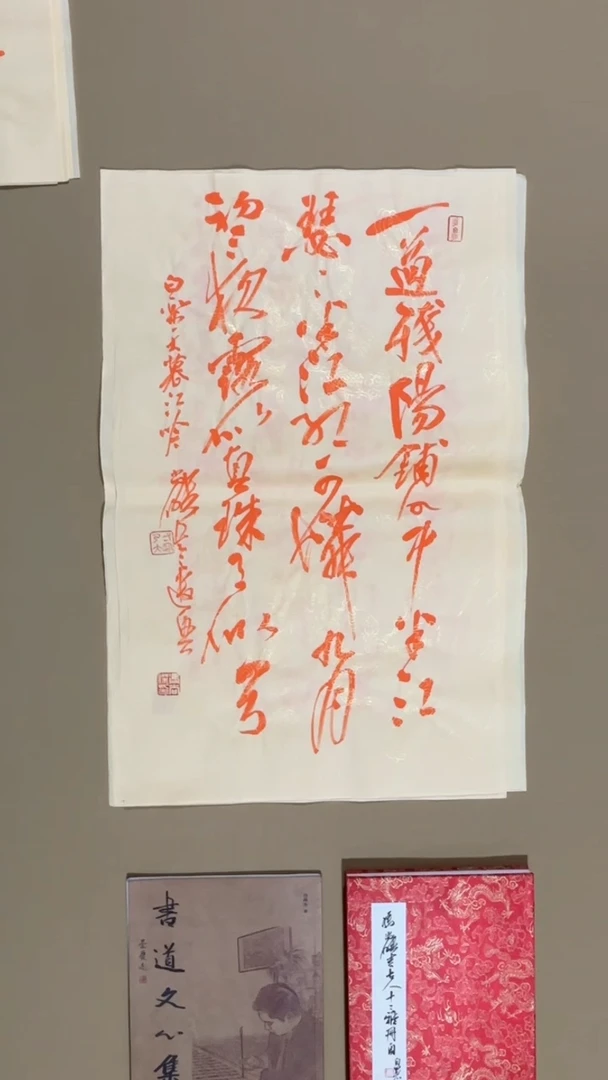 一道殘陽鋪水中半江
瑟〻半江紅可憐九月
初三夜露似真珠月似弓
白樂天暮江吟
書道文心集
老人十三